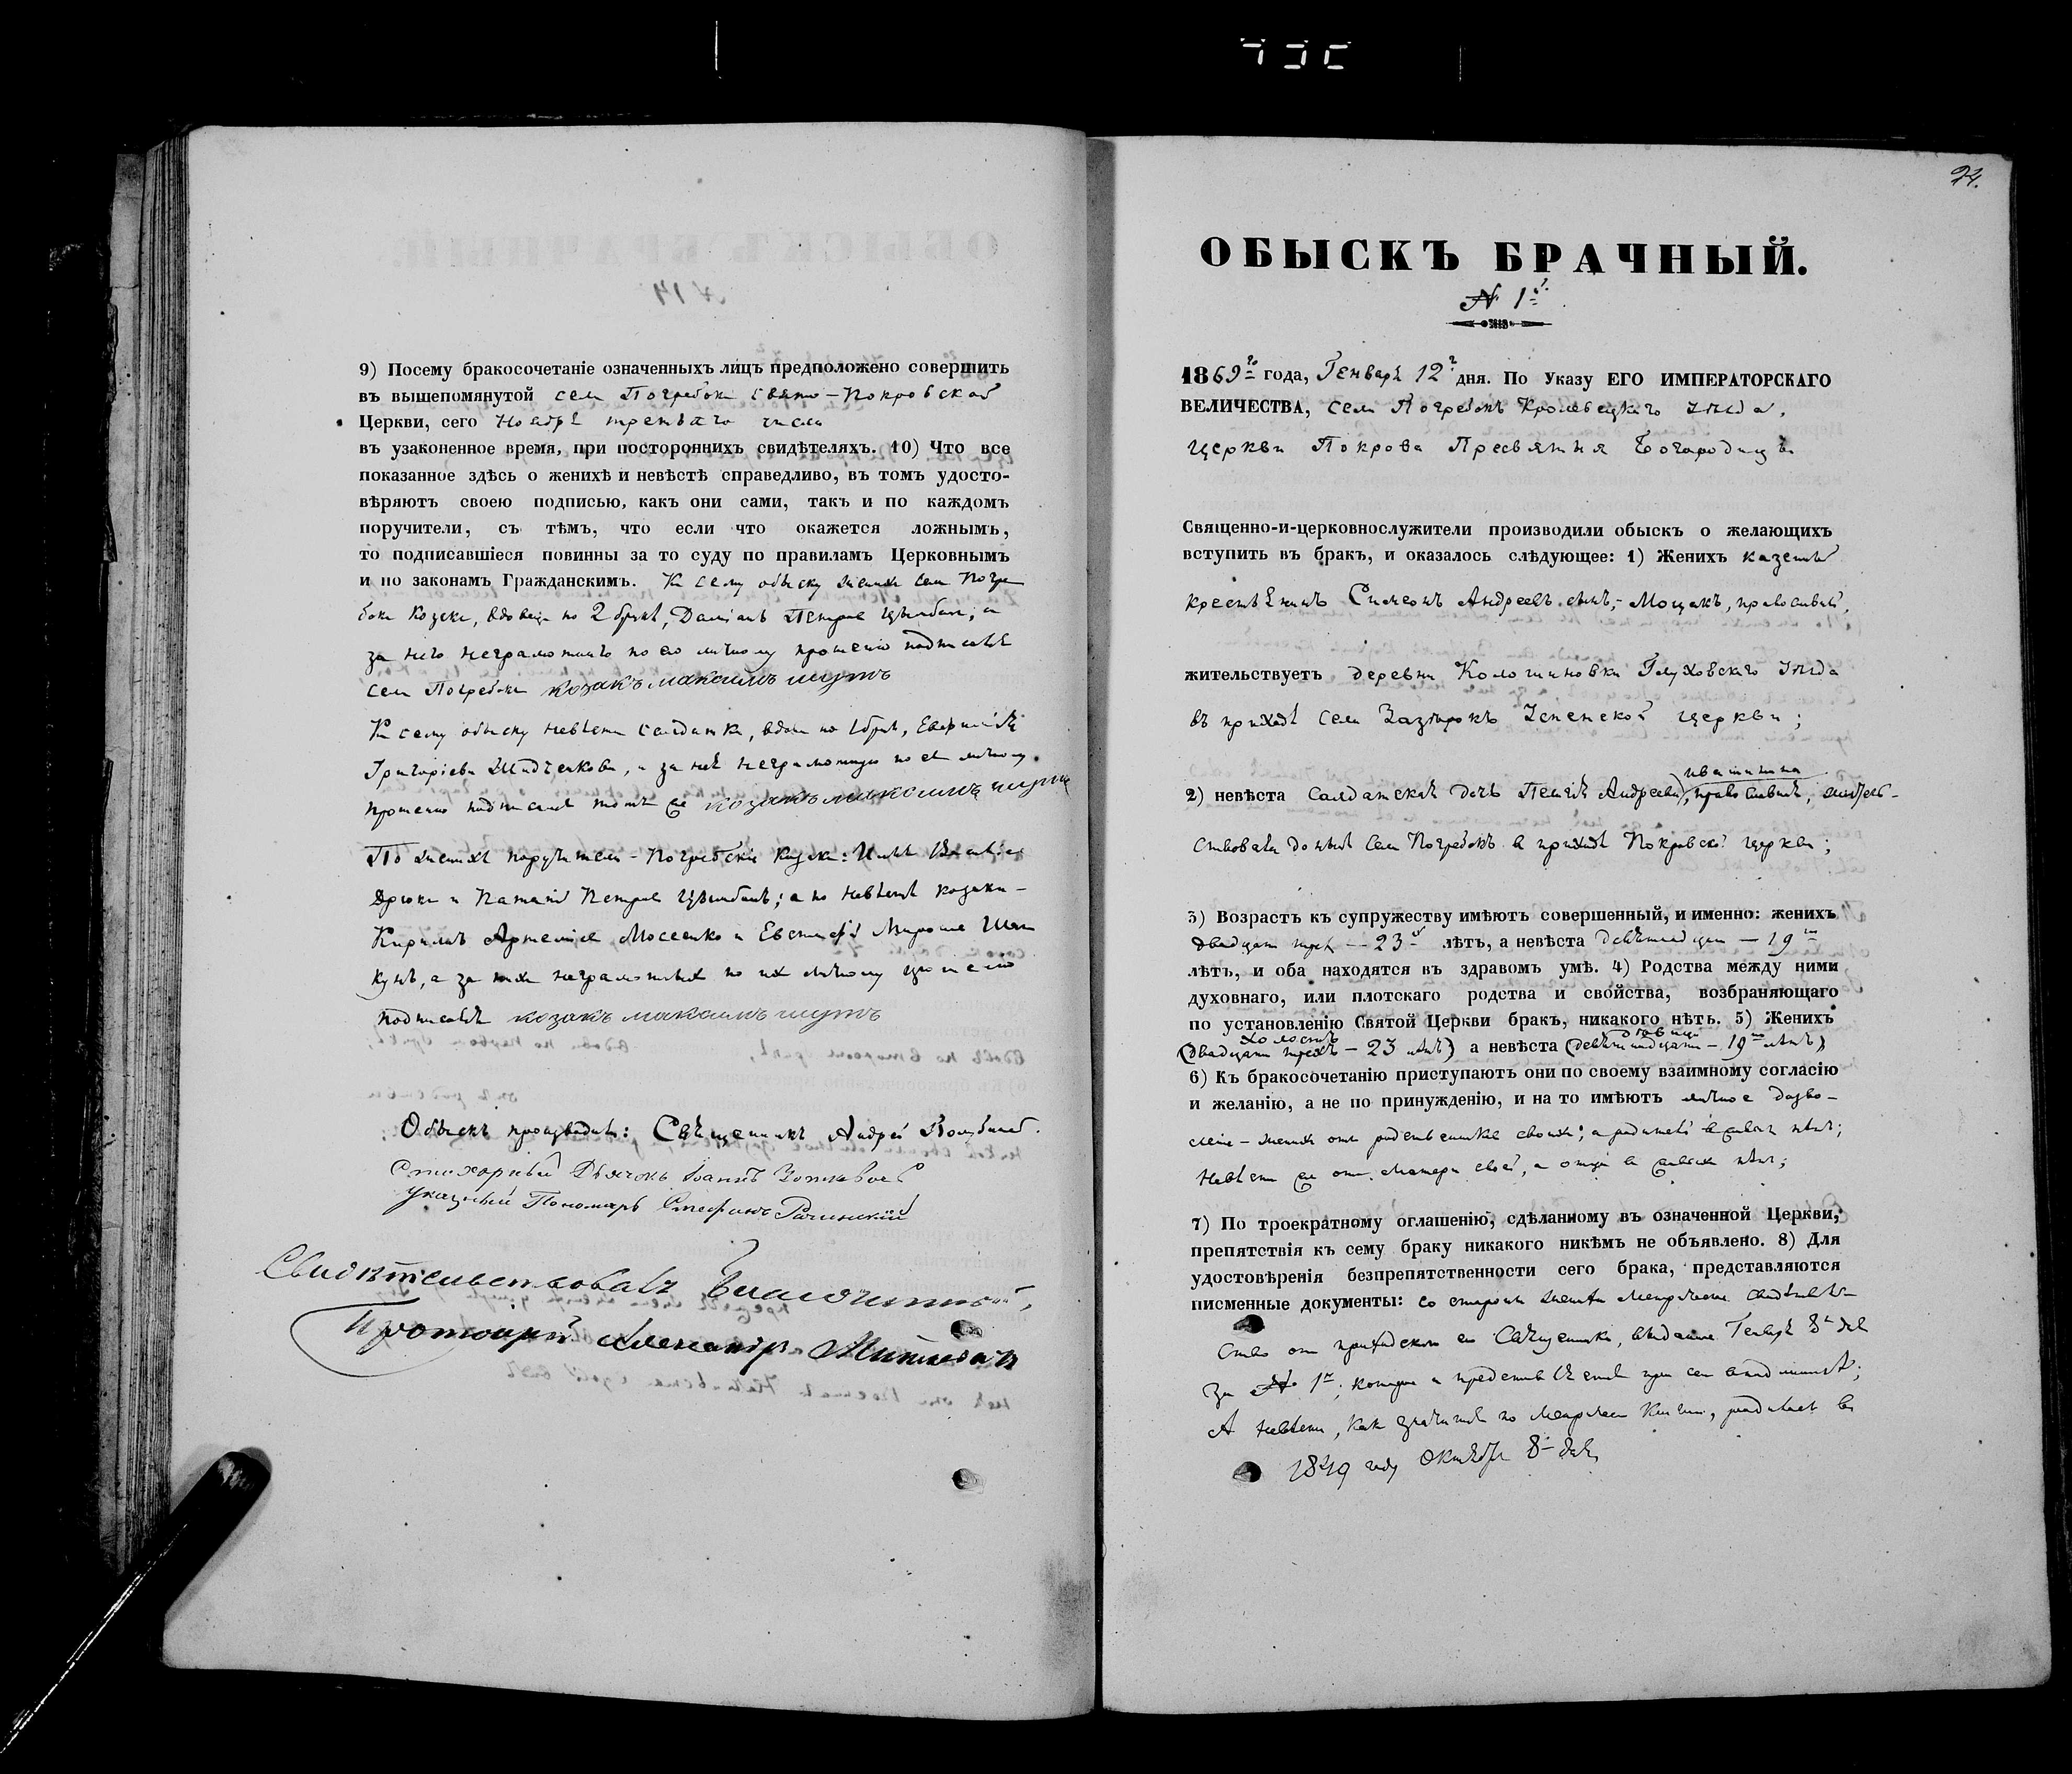 9) Посему бракосочетаніе означенныхъ лицъ предположено совершить
въ вышепомянутой села Погребокъ Свято-Покровской
Церкви, сего Ноября третьяго числа
въ узаконенное время, при постороннихъ свидѣтеляхъ. 10) Что все
показанное здѣсь о женихѣ и невѣстѣ справедливо, въ томъ удосто-
вѣряютъ своею подписью, какъ они сами, такъ и по каждомъ
поручители, съ тѣмъ, что если что окажется ложнымъ,
то подписавшіеся повинны за то суду по правиламъ Церковнымъ
и по законамъ Гражданскимъ. Къ сему обыску женихъ села Погре
бокъ козакъ, вдовецъ по 2 бракѣ, Даміанъ Петровъ; а
за него неграмотнаго по его личному прошенію подписался
села Погребокъ козакъ максимъ шутъ
Къ сему обыску невѣста солдатка, вдова по 1 бракѣ,
Григоріева, а за неё неграмотную по ея личному
прошенію подписался тотъ же козакъ максимъ шутъ
По женихѣ поручители - Погребскіе козаки:
и Петровъ; а по невѣстѣ козаки -
Кирилъ Артеміевъ Мосеенко и
а за нихъ неграмотныхъ по ихъ личному прошенію
подписался козакъ максимъ шутъ
Обыскъ производили: Священникъ Андрей
Стихарный Дьячокъ Іоаннъ
указный Пономарь Стефанъ Рачинскій
Свидѣтельствовалъ Благочинный,
Протоіерей Александръ
24.
ОБЫСКЪ БРАЧНЫЙ.
№ 1й.
1869го года, Генваря 12го дня. По Указу ЕГО ИМПЕРАТОРСКАГО
ВЕЛИЧЕСТВА, села Погребокъ Кролевецкаго уѣзда,
церкви Покрова Пресвятыя Богородицы
Священно-и-церковнослужители производили обыскъ о желающихъ
вступить въ бракъ, и оказалось слѣдующее: 1) Женихъ казенный
крестьянинъ Симеонъ Андреевъ сынъ, - Мощакъ, православный,
жительствуетъ деревни Кологиновки Глуховскаго уѣзда
въ приходѣ села Зазѣрокъ Успенской церкви;
ивашина
2) невѣста солдатская дочь Пелагія Андреева, православная, жител-
ствовала донынѣ села Погребокъ въ приходѣ Покровской церкви;
3) Возрастъ къ супружеству имѣютъ совершенный, и именно: женихъ
двадцати трехъ - 23 лѣтъ, а невѣста девятнадцати - 19ти
лѣтъ, и оба находятся въ здравомъ умѣ. 4) Родства между ними
духовнаго, или плотскаго родства и свойства, возбраняющаго
по установленію Святой Церкви бракъ, никакого нѣтъ. 5) Женихъ
холостъ девица
(двадцати трехъ - 23 лѣтъ) а невѣста (девятнадцати - 19ти лѣтъ)
6) Къ бракосочетанію приступаютъ они по своему взаимному согласію
и желанію, а не по принужденію, и на то имѣютъ личное дозво-
леніе - женихъ отъ родственника своихъ; а родителей въ живыхъ нѣтъ;
Невѣста же отъ Матери своей, а отца въ живыхъ нѣтъ;
7) По троекратному оглашенію, сдѣланному въ означенной Церкви,
препятствія къ сему браку никакого никѣмъ не объявлено. 8) Для
удостовѣренія безпрепятственности сего брака, представляются
писменные документы: со стороны жениха Метрическое свидѣтель-
ство отъ приходскаго его Священника, выданное Генваря 8го дня
за № 1м; которое и представляется при семъ
А невѣста, какъ значится по Метрической Книгѣ, родилась въ
1849 году Октября 8го дня